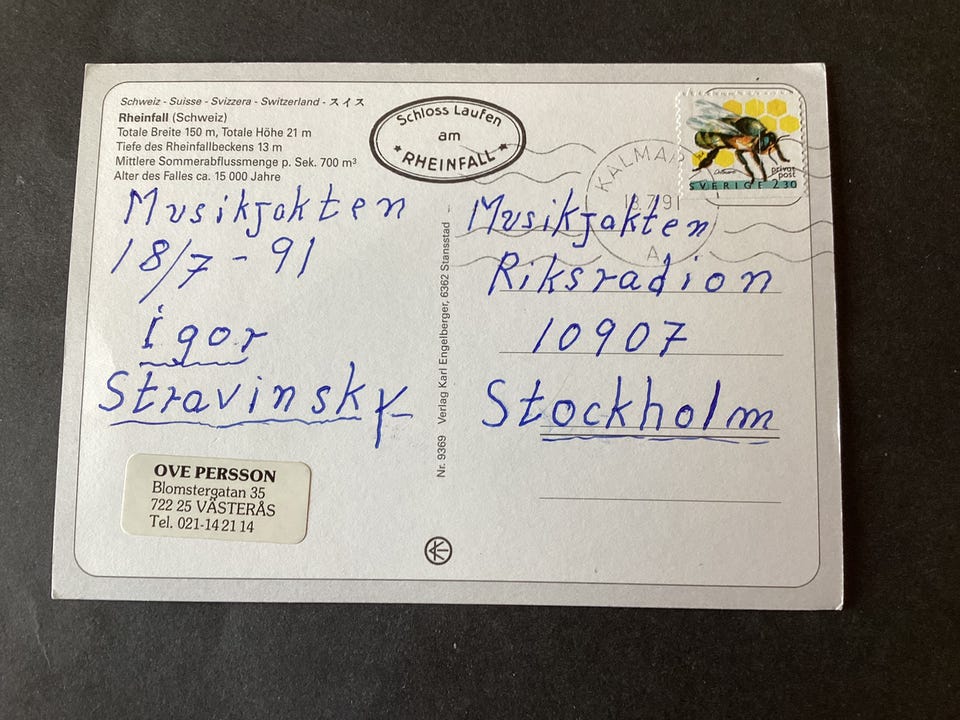 Schweiz - Suisse - Svizzera - Switzerland - スイス
Rheinfall (Schweiz)
Totale Breite 150 m, Totale Höhe 21 m
Tiefe des Rheinfallbeckens 13 m
Mittlere Sommerabflussmenge p. Sek. 700 m³
Alter des Falles ca. 15 000 Jahre
Schloss Laufen
am
★ RHEINFALL ★
KALMAR
18.7.91
A
privat
post
SVERIGE 2.30
Musikjakten
18/7 - 91
Igor
Stravinsky
OVE PERSSON
Blomstergatan 35
722 25 VÄSTERÅS
Tel. 021-14 21 14
Nr. 9369 Verlag Karl Engelberger, 6362 Stansstad
Musikjakten
Riksradion
10907
Stockholm